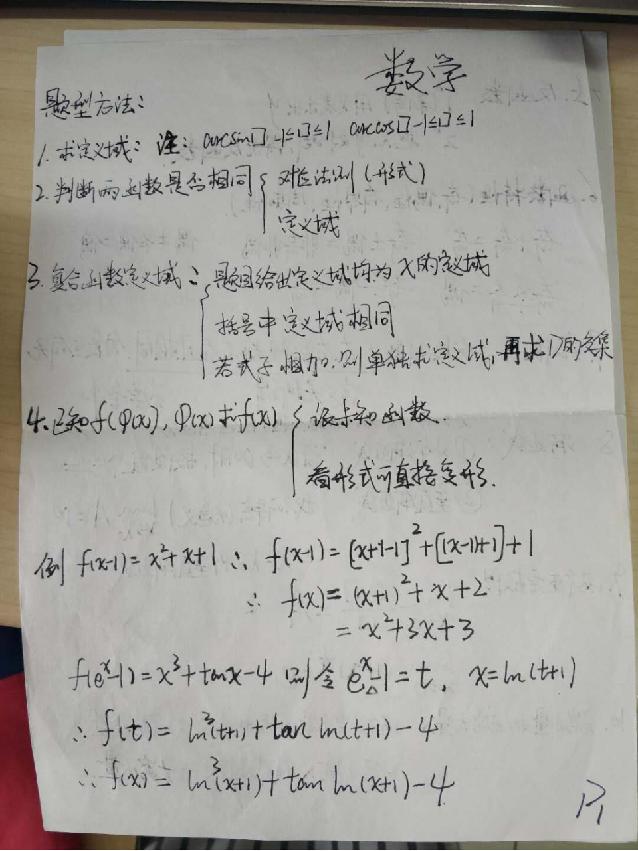 数学
题型方法：
1. 求定义域：注：arcsin[] -1≤[]≤1 arccos[] -1≤[]≤1
2. 判断两函数是否相同 { 对应法则（形式）
定义域
3. 复合函数定义域： { 题目给出定义域均为x的定义域
括号中定义域相同
若式子相加，则单独求定义域，再求D的交集
4. 已知f(φ(x)), φ(x)求f(x) { 设未知函数.
看形式可直接变形.
例 f(x-1)=x²+x+1 ∴ f(x-1)=[x+1-1]²+[(x-1)+1]+1
∴ f(x)=(x+1)²+x+2
=x²+3x+3
f(e^x-1)=x³+tanx-4 则令e^x-1=t, x=ln(t+1)
∴ f(t)=ln³(t+1)+tan ln(t+1)-4
∴ f(x)=ln³(x+1)+tan ln(x+1)-4
P1